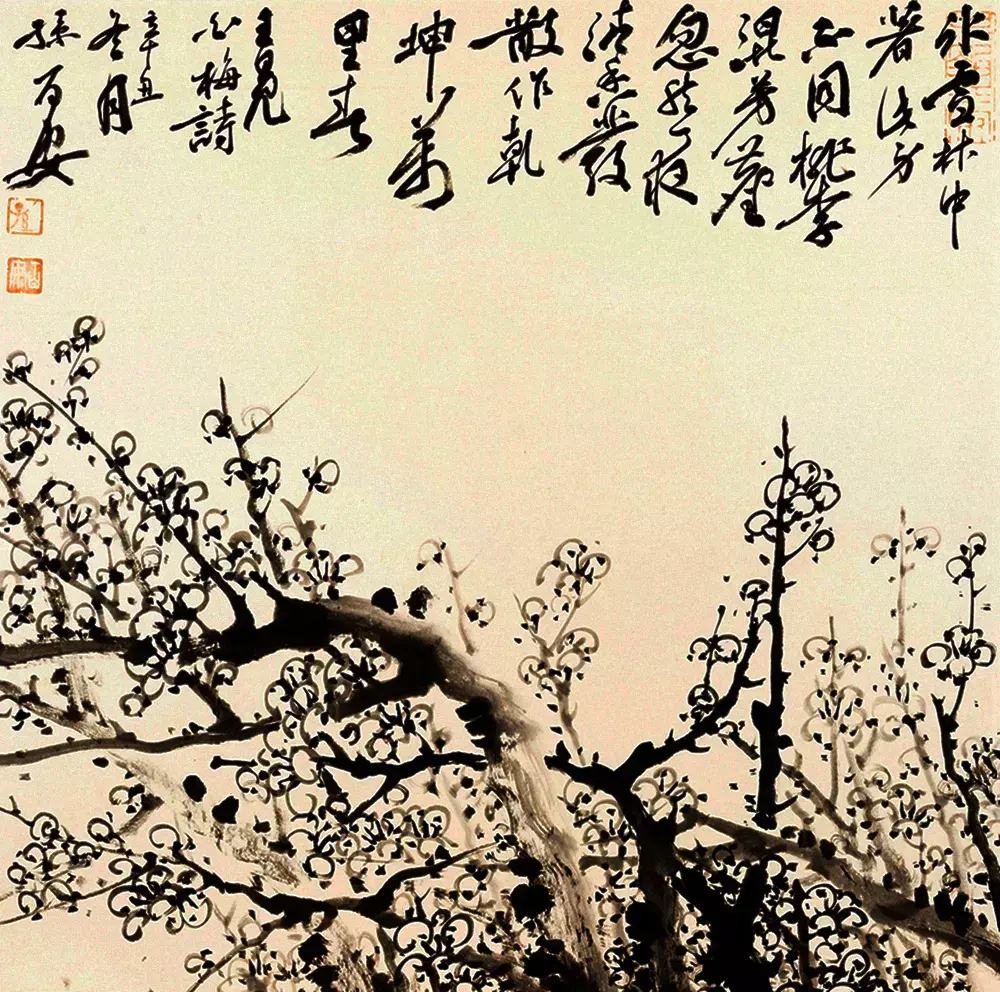 冰雪林中
著此身
不同桃李
混芳塵
忽然一夜
清香發
散作乾
坤萬
里春
王冕
白梅詩
辛丑
冬月
孫百安